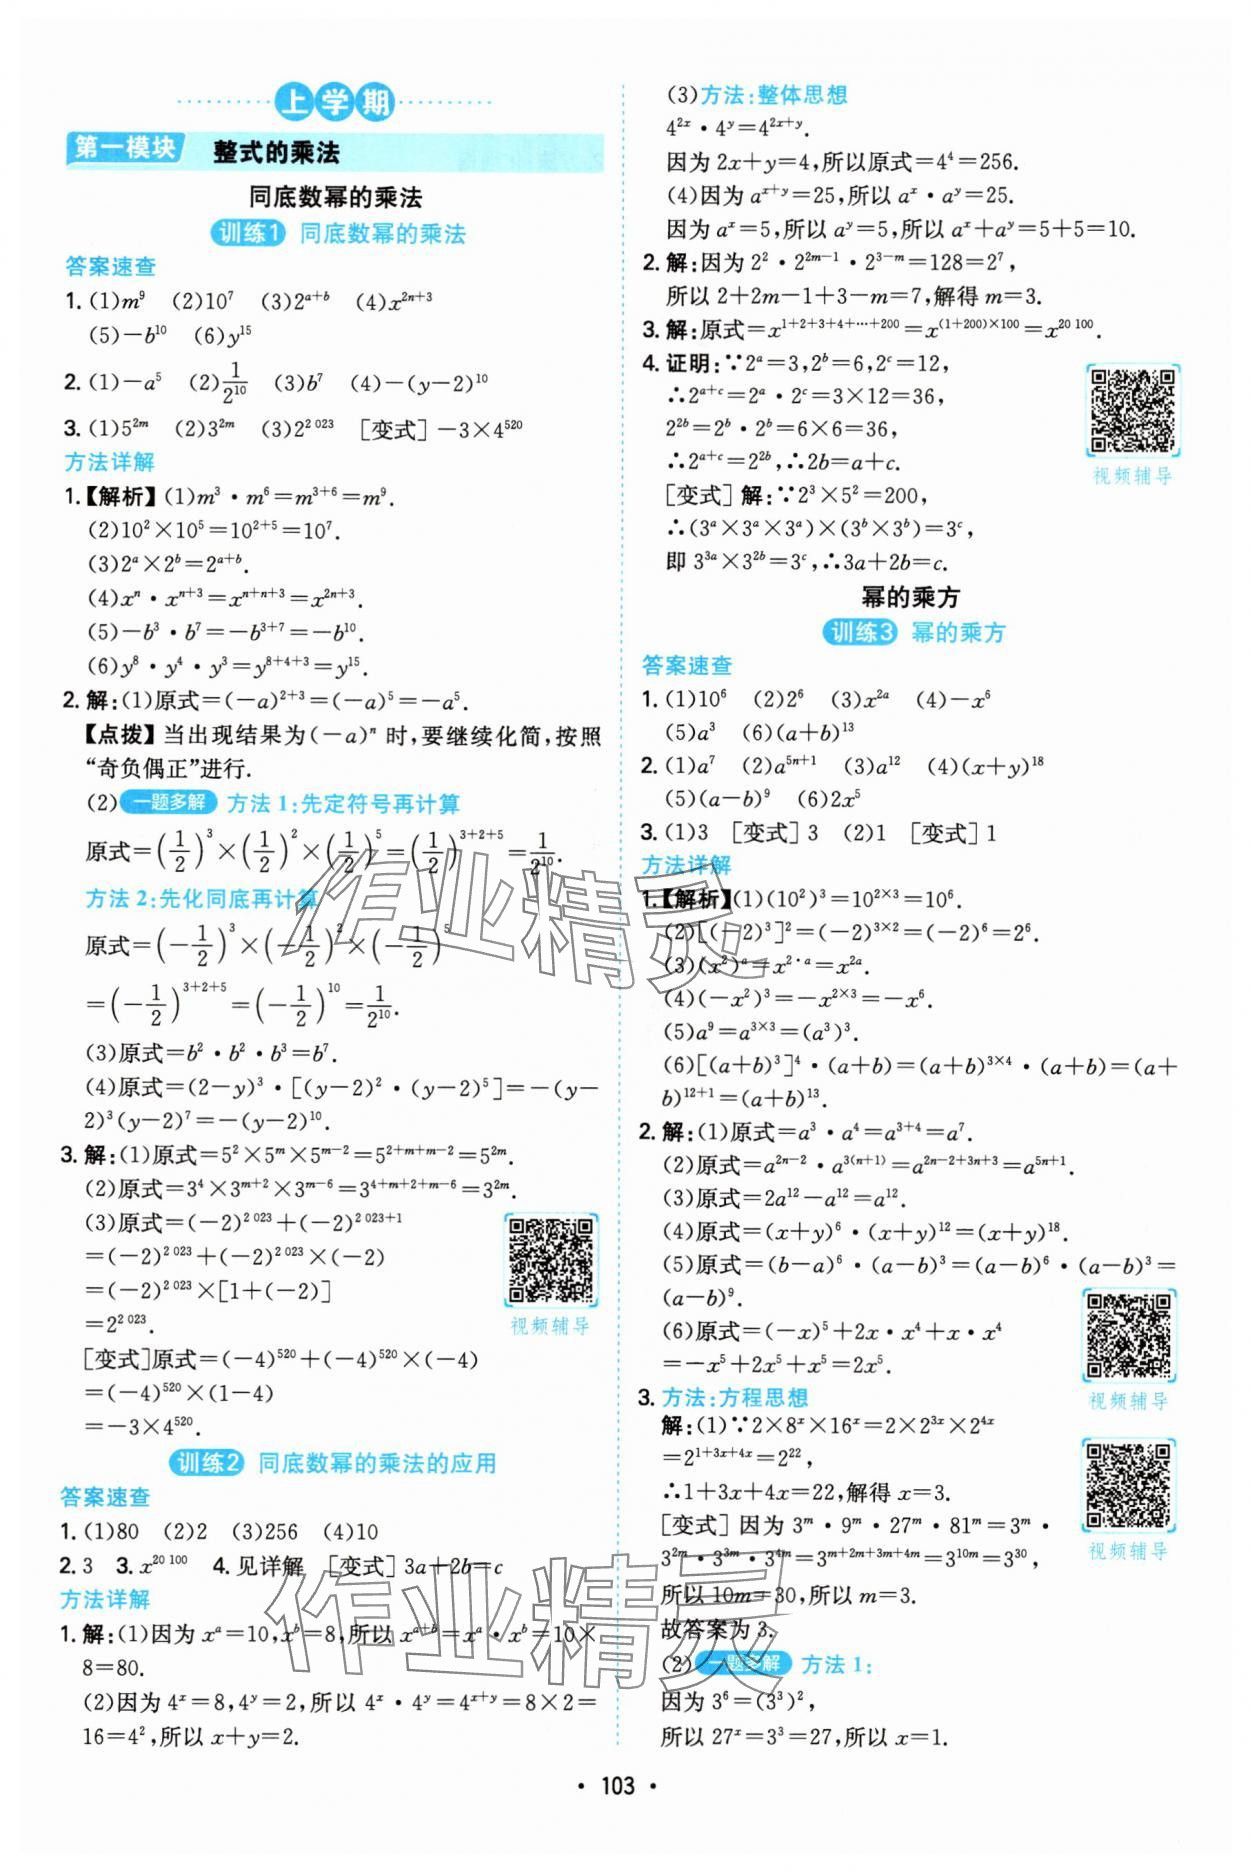 上学期
第一模块 整式的乘法
同底数幂的乘法
训练1 同底数幂的乘法
答案速查
1. (1)m⁹ (2)10⁷ (3)2ᵃ⁺ᵇ (4)x²ⁿ⁺³
(5)－b¹⁰ (6)y¹⁵
2. (1)－a⁵ (2)1/2¹⁰ (3)b⁷ (4)－(y－2)¹⁰
3. (1)5²ᵐ (2)3²ᵐ (3)2^(2 023) [变式]－3×4⁵²⁰
方法详解
1.【解析】(1)m³·m⁶=m³⁺⁶=m⁹.
(2)10²×10⁵=10²⁺⁵=10⁷.
(3)2ᵃ×2ᵇ=2ᵃ⁺ᵇ.
(4)xⁿ·xⁿ⁺³=xⁿ⁺ⁿ⁺³=x²ⁿ⁺³.
(5)－b³·b⁷=－b³⁺⁷=－b¹⁰.
(6)y⁸·y⁴·y³=y⁸⁺⁴⁺³=y¹⁵.
2. 解:(1)原式=(－a)²⁺³=(－a)⁵=－a⁵.
【点拨】当出现结果为(－a)ⁿ时,要继续化简,按照
“奇负偶正”进行.
(2)一题多解 方法1:先定符号再计算
原式=(1/2)³×(1/2)²×(1/2)⁵=(1/2)³⁺²⁺⁵=1/2¹⁰.
方法2:先化同底再计算
原式=(－1/2)³×(－1/2)²×(－1/2)⁵
=(－1/2)³⁺²⁺⁵=(－1/2)¹⁰=1/2¹⁰.
(3)原式=b²·b²·b³=b⁷.
(4)原式=(2－y)³·[(y－2)²·(y－2)⁵]=－(y－
2)³(y－2)⁷=－(y－2)¹⁰.
3. 解:(1)原式=5²×5ᵐ×5ᵐ⁻²=5²⁺ᵐ⁺ᵐ⁻²=5²ᵐ.
(2)原式=3⁴×3ᵐ⁺²×3ᵐ⁻⁶=3⁴⁺ᵐ⁺²⁺ᵐ⁻⁶=3²ᵐ.
(3)原式=(－2)^(2 023)+(－2)^(2 023+1)
=(－2)^(2 023)+(－2)^(2 023)×(－2)
=(－2)^(2 023)×[1+(－2)]
=2^(2 023).
视频辅导
[变式]原式=(－4)⁵²⁰+(－4)⁵²⁰×(－4)
=(－4)⁵²⁰×(1－4)
=－3×4⁵²⁰.
训练2 同底数幂的乘法的应用
答案速查
1. (1)80 (2)2 (3)256 (4)10
2. 3 3. x^(20 100) 4. 见详解 [变式]3a+2b=c
方法详解
1. 解:(1)因为xᵃ=10,xᵇ=8,所以xᵃ⁺ᵇ=xᵃ·xᵇ=10×
8=80.
(2)因为4ˣ=8,4ʸ=2,所以4ˣ·4ʸ=4ˣ⁺ʸ=8×2=
16=4²,所以x+y=2.
(3)方法:整体思想
4²ˣ·4ʸ=4²ˣ⁺ʸ.
因为2x+y=4,所以原式=4⁴=256.
(4)因为aˣ⁺ʸ=25,所以aˣ·aʸ=25.
因为aˣ=5,所以aʸ=5,所以aˣ+aʸ=5+5=10.
2. 解:因为2²·2²ᵐ⁻¹·2³⁻ᵐ=128=2⁷,
所以2+2m－1+3－m=7,解得m=3.
3. 解:原式=x^(1+2+3+4+…+200)=x^((1+200)×100)=x^(20 100).
4. 证明:∵2ᵃ=3,2ᵇ=6,2ᶜ=12,
∴2ᵃ⁺ᶜ=2ᵃ·2ᶜ=3×12=36,
2²ᵇ=2ᵇ·2ᵇ=6×6=36,
∴2ᵃ⁺ᶜ=2²ᵇ,∴2b=a+c.
视频辅导
[变式]解:∵2³×5²=200,
∴(3ᵃ×3ᵃ×3ᵃ)×(3ᵇ×3ᵇ)=3ᶜ,
即3³ᵃ×3²ᵇ=3ᶜ,∴3a+2b=c.
幂的乘方
训练3 幂的乘方
答案速查
1. (1)10⁶ (2)2⁶ (3)x²ᵃ (4)－x⁶
(5)a³ (6)(a+b)¹³
2. (1)a⁷ (2)a⁵ⁿ⁺¹ (3)a¹² (4)(x+y)¹⁸
(5)(a－b)⁹ (6)2x⁵
3. (1)3 [变式]3 (2)1 [变式]1
方法详解
1.【解析】(1)(10²)³=10²ˣ³=10⁶.
(2)[(－2)³]²=(－2)^(3×2)=(－2)⁶=2⁶.
(3)(x²)ᵃ=x^(2·a)=x²ᵃ.
(4)(－x²)³=－x^(2×3)=－x⁶.
(5)a⁹=a^(3×3)=(a³)³.
(6)[(a+b)³]⁴·(a+b)=(a+b)^(3×4)·(a+b)=(a+
b)¹²⁺¹=(a+b)¹³.
2. 解:(1)原式=a³·a⁴=a³⁺⁴=a⁷.
(2)原式=a²ⁿ⁻²·a^(3(n+1))=a²ⁿ⁻²⁺³ⁿ⁺³=a⁵ⁿ⁺¹.
(3)原式=2a¹²－a¹²=a¹².
(4)原式=(x+y)⁶·(x+y)¹²=(x+y)¹⁸.
(5)原式=(b－a)⁶·(a－b)³=(a－b)⁶·(a－b)³=
(a－b)⁹.
(6)原式=(－x)⁵+2x·x⁴+x·x⁴
=－x⁵+2x⁵+x⁵=2x⁵.
视频辅导
3. 方法:方程思想
解:(1)∵2×8ˣ×16ˣ=2×2³ˣ×2⁴ˣ
=2¹⁺³ˣ⁺⁴ˣ=2²²,
∴1+3x+4x=22,解得x=3.
[变式]因为3ᵐ·9ᵐ·27ᵐ·81ᵐ=3ᵐ·
3²ᵐ·3³ᵐ·3⁴ᵐ=3ᵐ⁺²ᵐ⁺³ᵐ⁺⁴ᵐ=3¹⁰ᵐ=3³⁰,
视频辅导
所以10m=30,所以m=3.
故答案为3.
(2)一题多解 方法1:
因为3⁶=(3³)²,
所以27ˣ=3³=27,所以x=1.
·103·
作业精灵
作业精灵